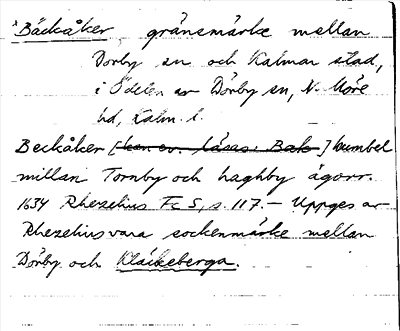 *Bäckåker, gränsmärke mellan
Dörby sn och Kalmar stad,
i Ödelen av Dörby sn, N. Möre
hd, Kalm. l.
Beckåker [kan ev. läsas: Bak-] kumbel
millan Tornby och haghby ägorr.
1634 Rhezelius Fc 5, s. 117. - Uppges av
Rhezelius vara sockenmärke mellan
Dörby och Kläckeberga.